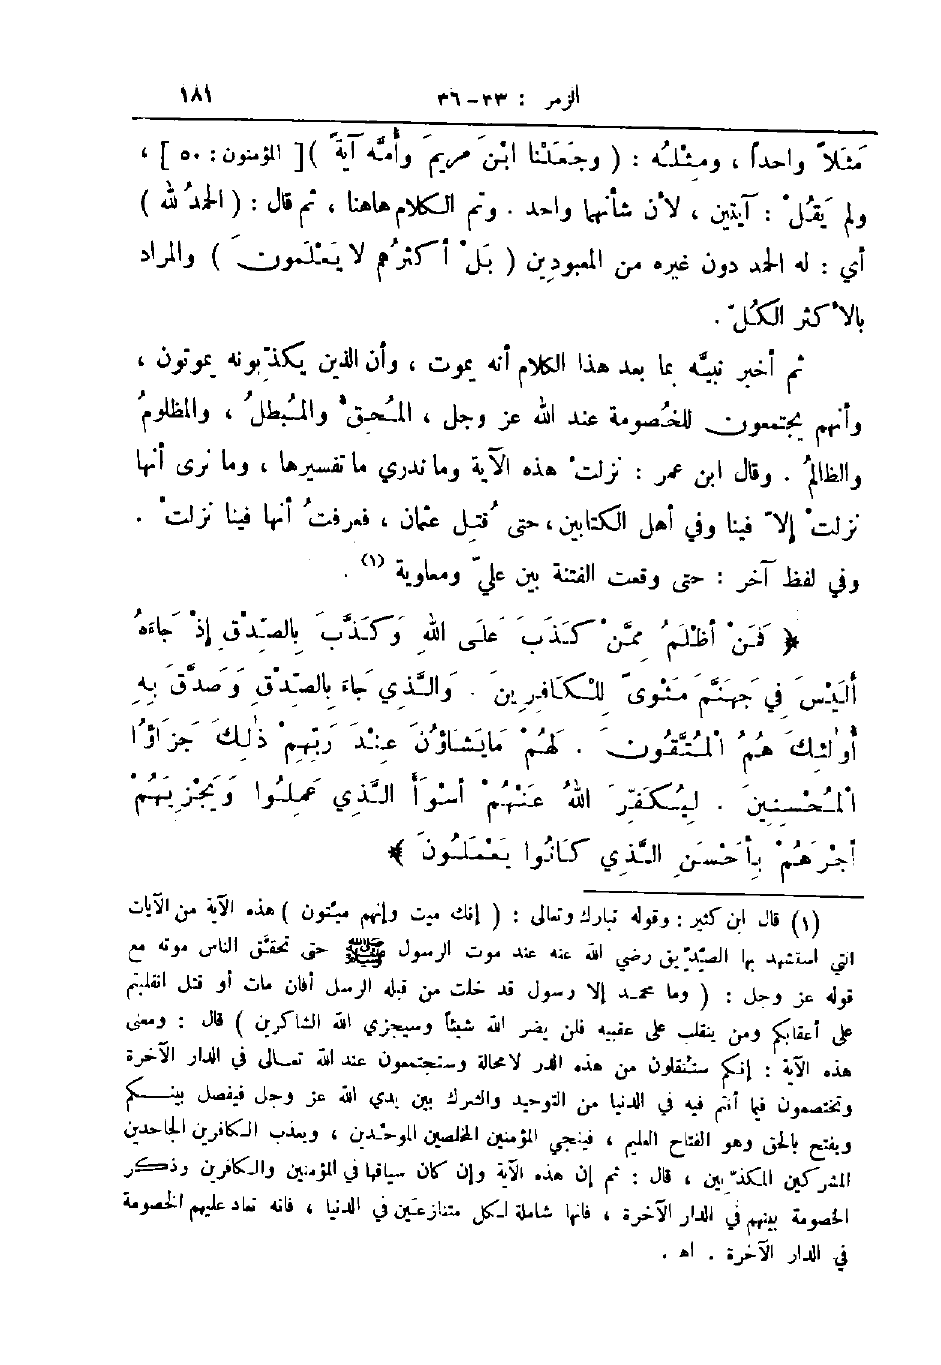 الزمر : ٣٣-٣٦ ١٨١
مَثَلاً واحداً ، ومِثْلُه : ( وجَعَلْنا ابْنَ مريمَ وأُمَّه آيةً )[ المؤمنون : ٥٠ ] ،
ولم يَقُلْ : آيتين ، لأن شأنهما واحد . وتم الكلام هاهنا ، ثم قال : ( الحمدُ لله )
أي : له الحمد دون غيره من المعبودِين ( بَلْ أكثرُهم لا يَعْلَمونَ ) والمراد
بالأكثر الكُلّ .
ثم أخبر نبيَّه بما بعد هذا الكلام أنه يموت ، وأن الذين يكذِّبونه يموتون ،
وأنهم يجتمعون للخُصومة عند الله عز وجل ، المُحِقُّ والمُبطلُ ، والمظلومُ
والظالمُ . وقال ابن عمر : نزلتْ هذه الآية وما ندري ما تفسيرها ، وما نرى أنها
نزلتْ إلاّ فينا وفي أهل الكتابين ، حتى قُتِل عثمان ، فعرفتُ أنها فينا نزلتْ .
وفي لفظ آخر : حتى وقعت الفتنة بين عليّ ومعاوية (١) .
﴿ فَمَنْ أَظْلَمُ مِمَّنْ كَذَبَ عَلَى اللهِ وَكَذَّبَ بِالصِّدْقِ إِذْ جَاءَهُ
أَلَيْسَ فِي جَهَنَّمَ مَثْوىً لِلْكَافِرِينَ . وَالَّذِي جَاءَ بِالصِّدْقِ وَصَدَّقَ بِهِ
أُولٰئِكَ هُمُ الْمُتَّقُونَ . لَهُمْ مَا يَشَاؤُنَ عِنْدَ رَبِّهِمْ ذٰلِكَ جَزَاؤُا
الْمُحْسِنِينَ . لِيُكَفِّرَ اللهُ عَنْهُمْ أَسْوَأَ الَّذِي عَمِلُوا وَيَجْزِيَهُمْ
أَجْرَهُمْ بِأَحْسَنِ الَّذِي كَانُوا يَعْمَلُونَ ﴾
(١) قال ابن كثير : وقوله تبارك وتعالى : ( إنك ميت وإنهم ميّتون ) هذه الآية من الآيات
التي استشهد بها الصِّدِّيق رضي الله عنه عند موت الرسول ﷺ حتى تحقَّق الناس موته مع
قوله عز وجل : ( وما محمد إلا رسول قد خلت من قبله الرسل أفان مات أو قتل انقلبتم
على أعقابكم ومن ينقلب على عقبيه فلن يضر الله شيئاً وسيجزي الله الشاكرين ) قال : ومعنى
هذه الآية : إنكم ستنقلون من هذه الدر لا محالة وستجتمعون عند الله تعالى في الدار الآخرة
وتختصمون فيما أنتم فيه في الدنيا من التوحيد والشرك بين يدي الله عز وجل فيفصل بينكم
ويفتح بالحق وهو الفتاح العليم ، فينجي المؤمنين المخلصين الموحّدين ، ويعذب الكافرين الجاحدين
المشركين المكذّبين ، قال : ثم إن هذه الآية وإن كان سياقها في المؤمنين والكافرين وذكر
الخصومة بينهم في الدار الآخرة ، فانها شاملة لكل متنازعَين في الدنيا ، فانه تعاد عليهم الخصومة
في الدار الآخرة . اه .